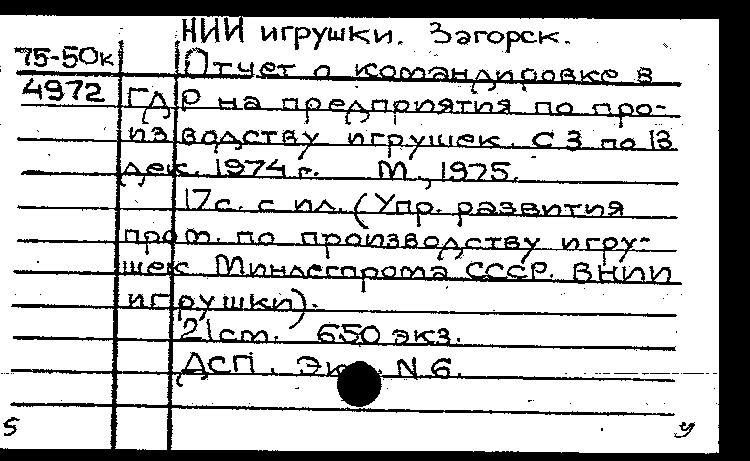 НИИ игрушки. Загорск.
75-50к Отчет о командировке в
4972 ГДР на предприятия по про-
изводству игрушек. С 3 по 13
дек. 1974 г. М., 1975.
17с. с ил. (Упр. развития
пром. по производству игру-
шек Минлегпрома СССР. ВНИИ
игрушки).
21см. 650 экз.
ДСП. Экз. N 6.
5 у